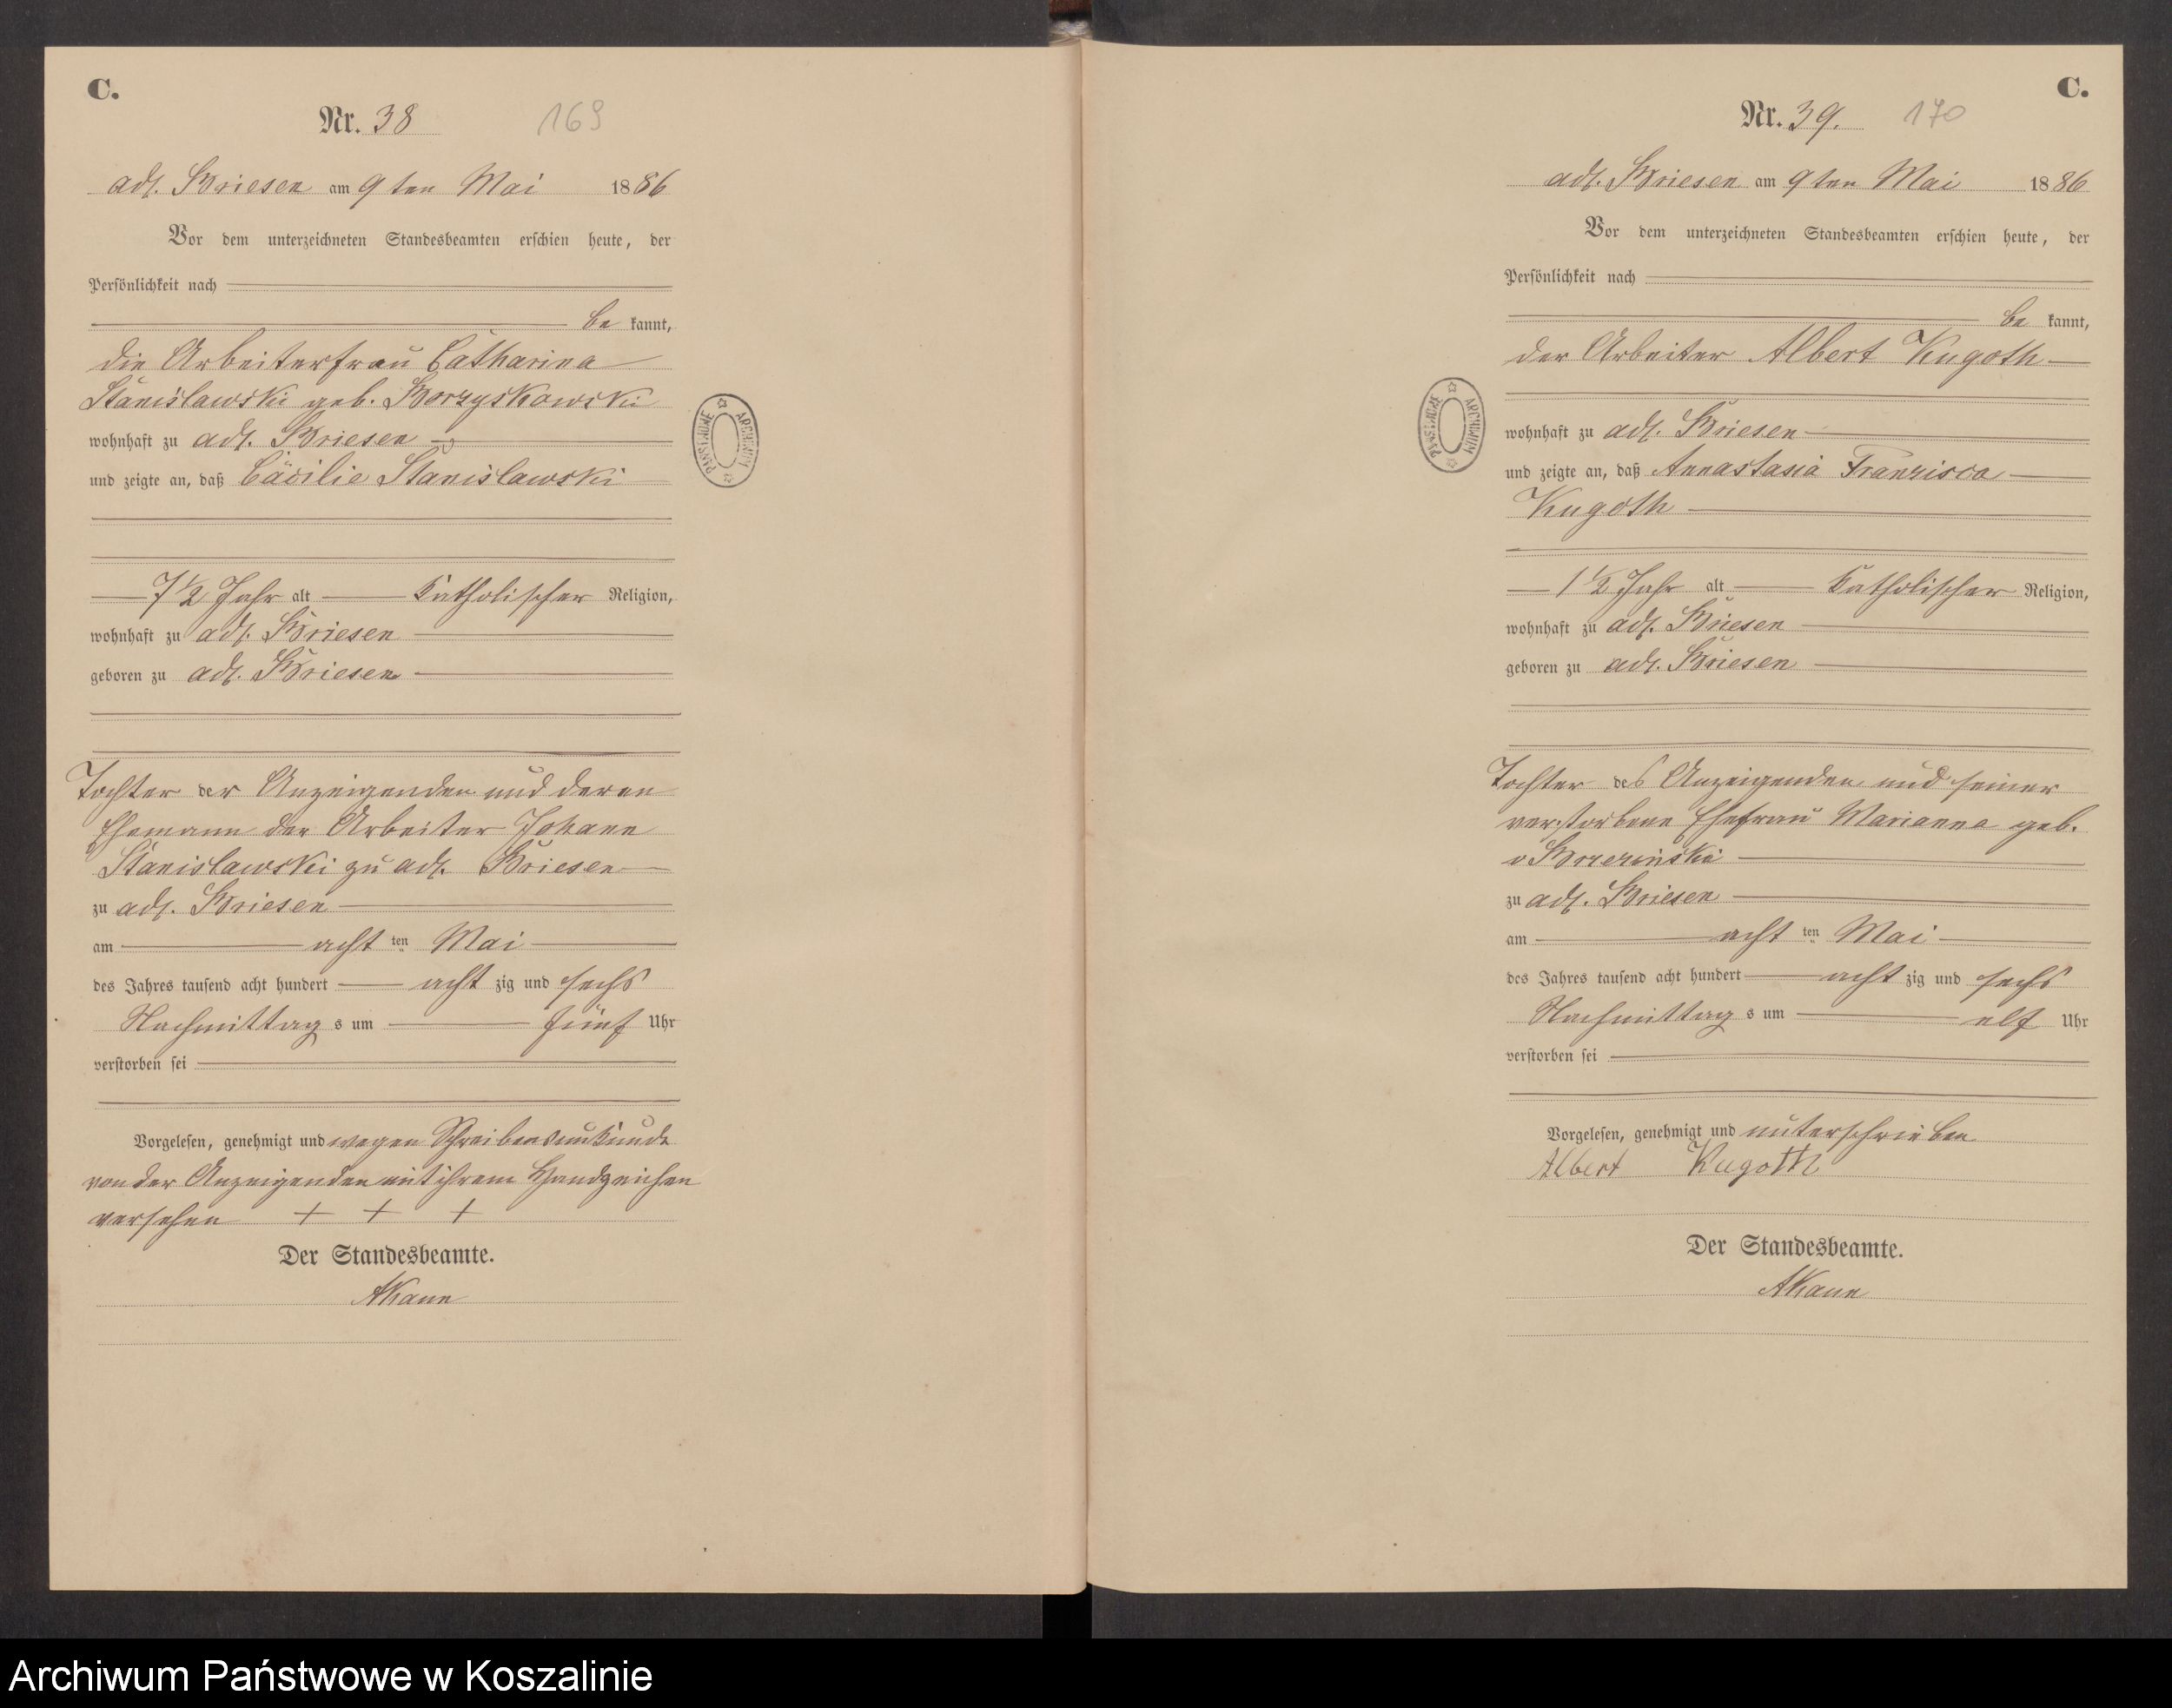 C.
Nr. 38 169
adl. Briesen am 9ten Mai 1886
Vor dem unterzeichneten Standesbeamten erschien heute, der
Persönlichkeit nach
be kannt,
die Arbeiterfrau Catharina
Stanislawski geb. Borzyskowski
wohnhaft zu adl. Briesen
und zeigte an, daß Cäcilie Stanislawski
7 1/2 Jahr alt Katholischer Religion,
wohnhaft zu adl. Briesen
geboren zu adl. Briesen
Tochter der Anzeigenden und deren
Ehemann der Arbeiter Johann
Stanislawski zu adl. Briesen
zu adl. Briesen
am acht ten Mai
des Jahres tausend acht hundert acht zig und sechs
Nachmittag s um fünf Uhr
verstorben sei
Vorgelesen, genehmigt und wegen Schreibensunkunde
von der Anzeigenden mit ihrem Handzeichen
versehen + + +
Der Standesbeamte.
AKann
C.
Nr. 39. 170
adl. Briesen am 9ten Mai 1886
Vor dem unterzeichneten Standesbeamten erschien heute, der
Persönlichkeit nach
be kannt,
der Arbeiter Albert Kugoth
wohnhaft zu adl. Briesen
und zeigte an, daß Annastasia Franzisca
Kugoth
1 1/2 Jahr alt Katholischer Religion,
wohnhaft zu adl. Briesen
geboren zu adl. Briesen
Tochter des Anzeigenden und seiner
verstorbene Ehefrau Marianna geb.
v
zu adl. Briesen
am acht ten Mai
des Jahres tausend acht hundert acht zig und sechs
Nachmittag s um elf Uhr
verstorben sei
Vorgelesen, genehmigt und unterschrieben
Albert Kugoth
Der Standesbeamte.
AKann
ARCHIWUM PAŃSTWOWE
ARCHIWUM PAŃSTWOWE
Archiwum Państwowe w Koszalinie